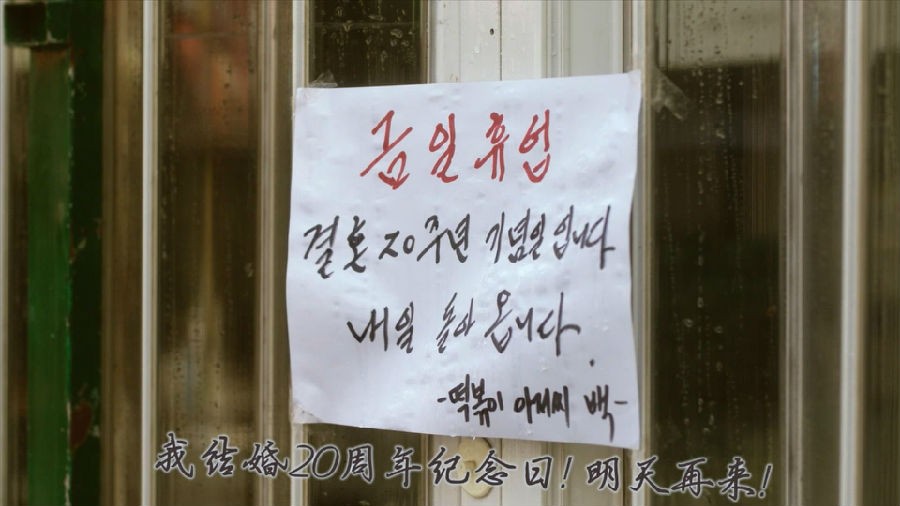 금일휴업
결혼 20주년 기념일입니다
내일 돌아 옵니다.
-떡볶이 아저씨 백-
我结婚20周年纪念日!明天再来!